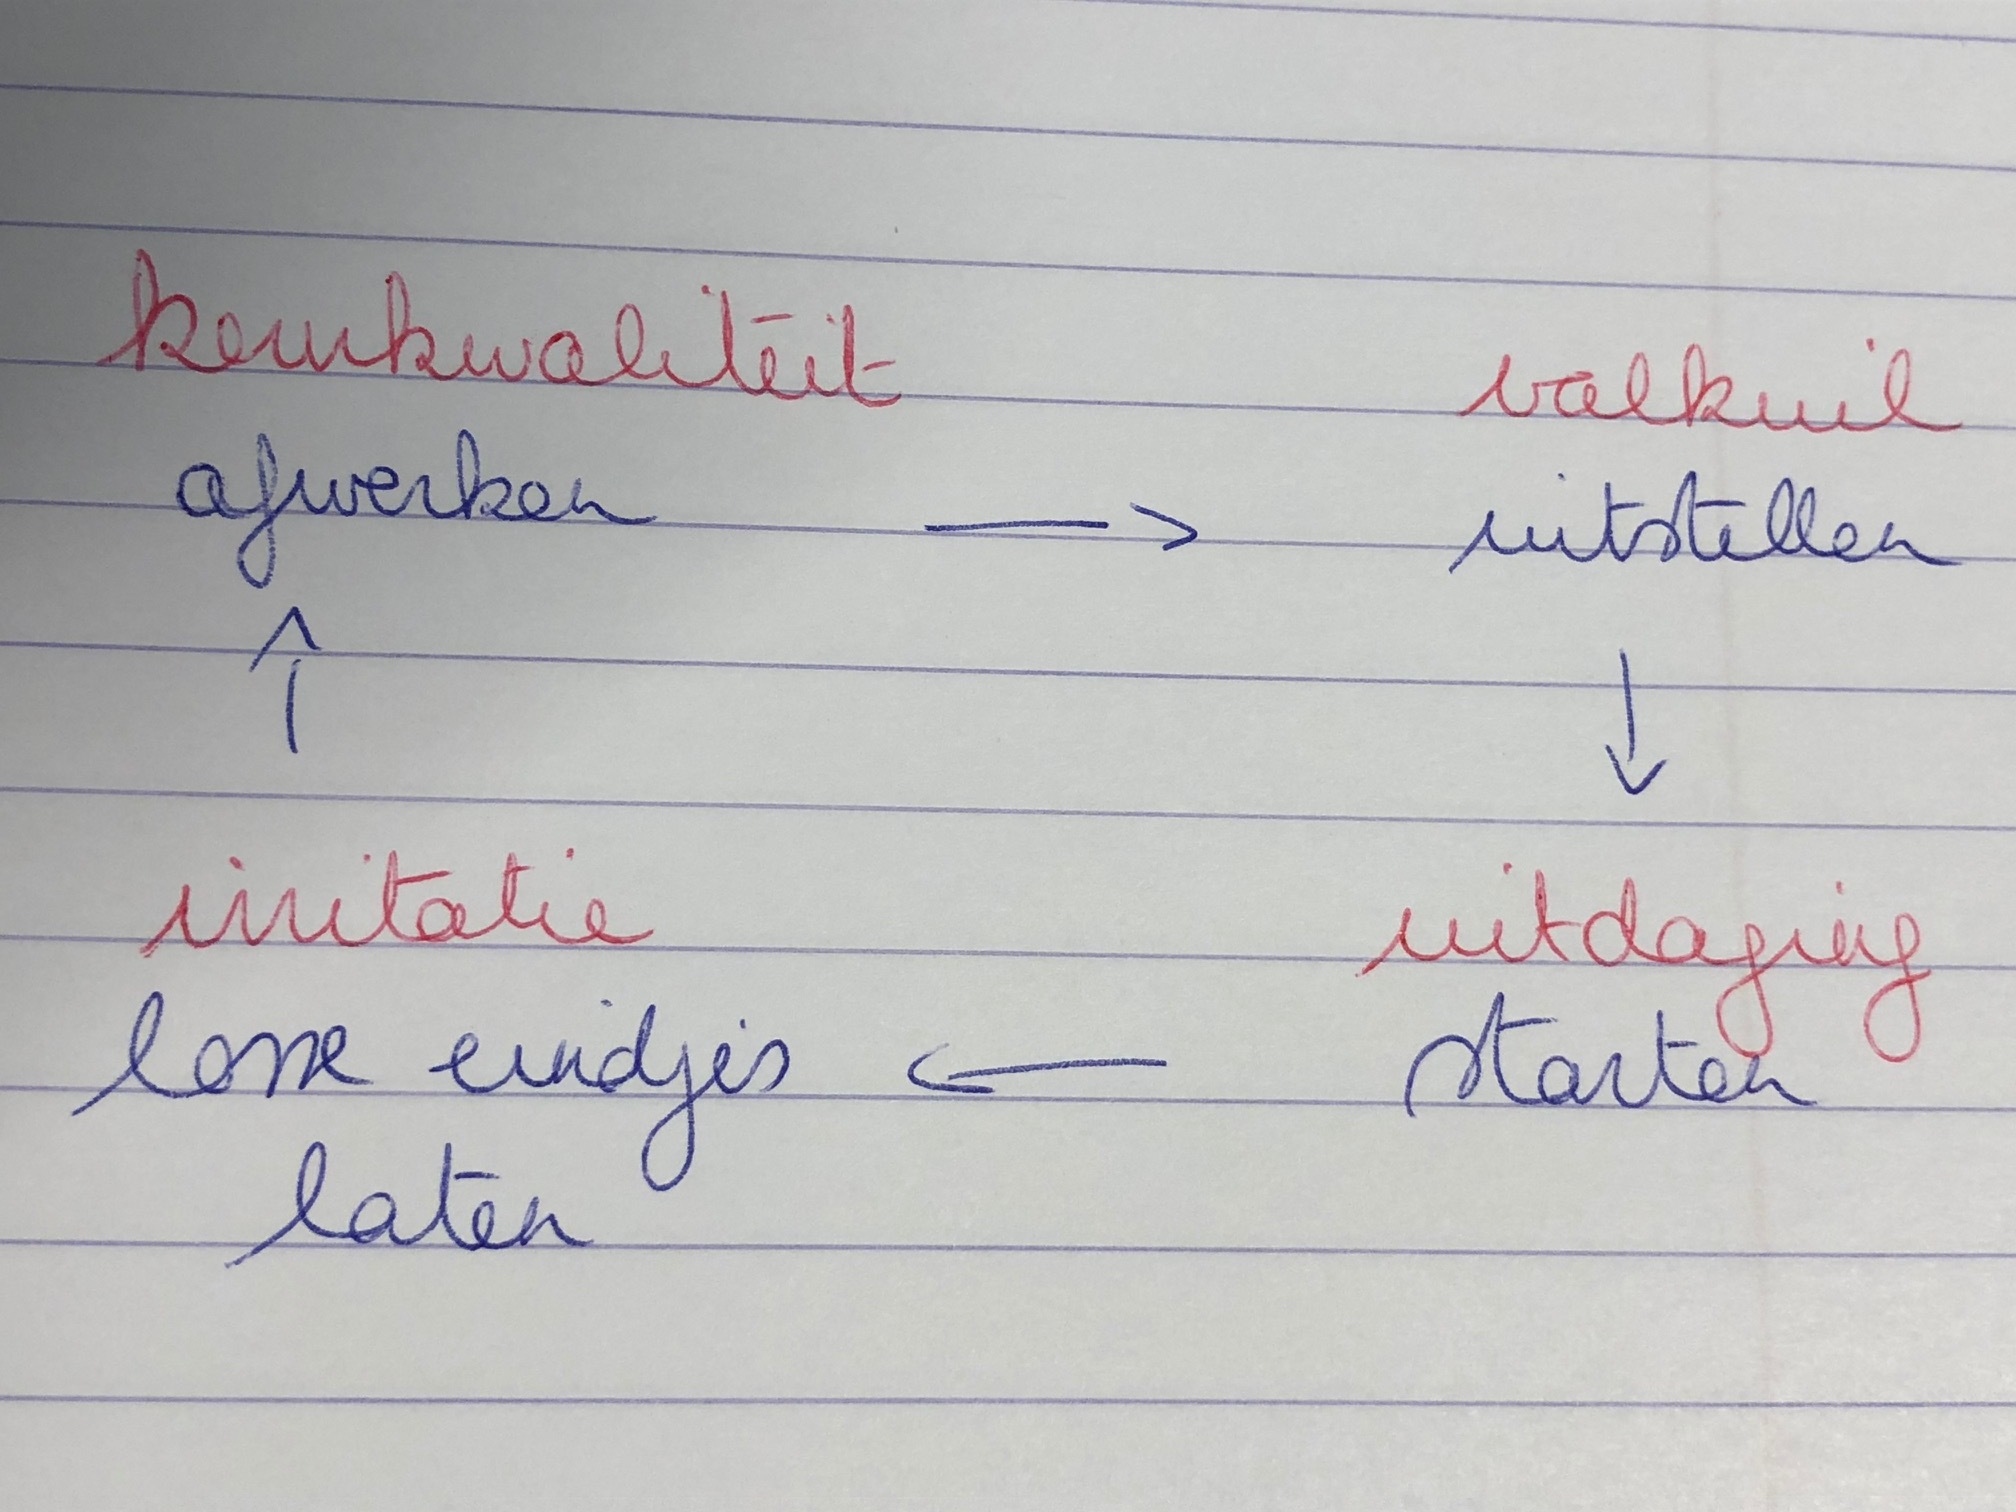 kernkwaliteit
valkuil
afwerken → uitstellen
↑ ↓
irritatie
uitdaging
losse eindjes ← starten
laten